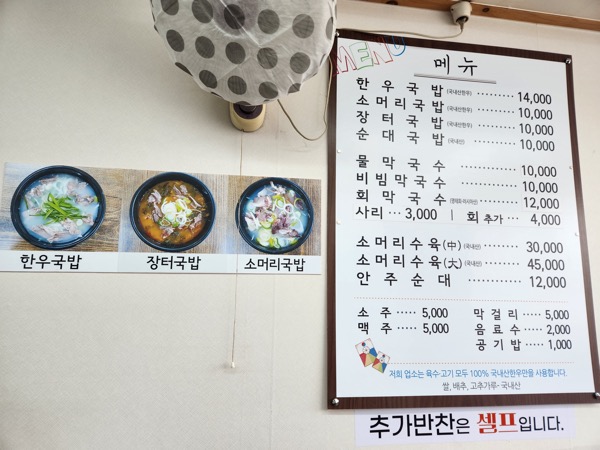 MENU
메뉴
한우국밥 (국내산한우) ·········· 14,000
소머리국밥 (국내산한우) ········ 10,000
장터국밥 (국내산한우) ·········· 10,000
순대국밥 (국내산) ············ 10,000
물막국수 ·················· 10,000
비빔막국수 ················ 10,000
회막국수 ········ 12,000
사리 ··· 3,000 | 회 추가 ··· 4,000
소머리수육(中) (국내산) ······· 30,000
소머리수육(大) (국내산) ······· 45,000
안주순대 ················ 12,000
소주 ····· 5,000 막걸리 ····· 5,000
맥주 ····· 5,000 음료수 ····· 2,000
공기밥 ····· 1,000
저희 업소는 육수·고기 모두 100% 국내산한우만을 사용합니다.
쌀, 배추, 고추가루- 국내산
추가반찬은 셀프입니다.
한우국밥
장터국밥
소머리국밥